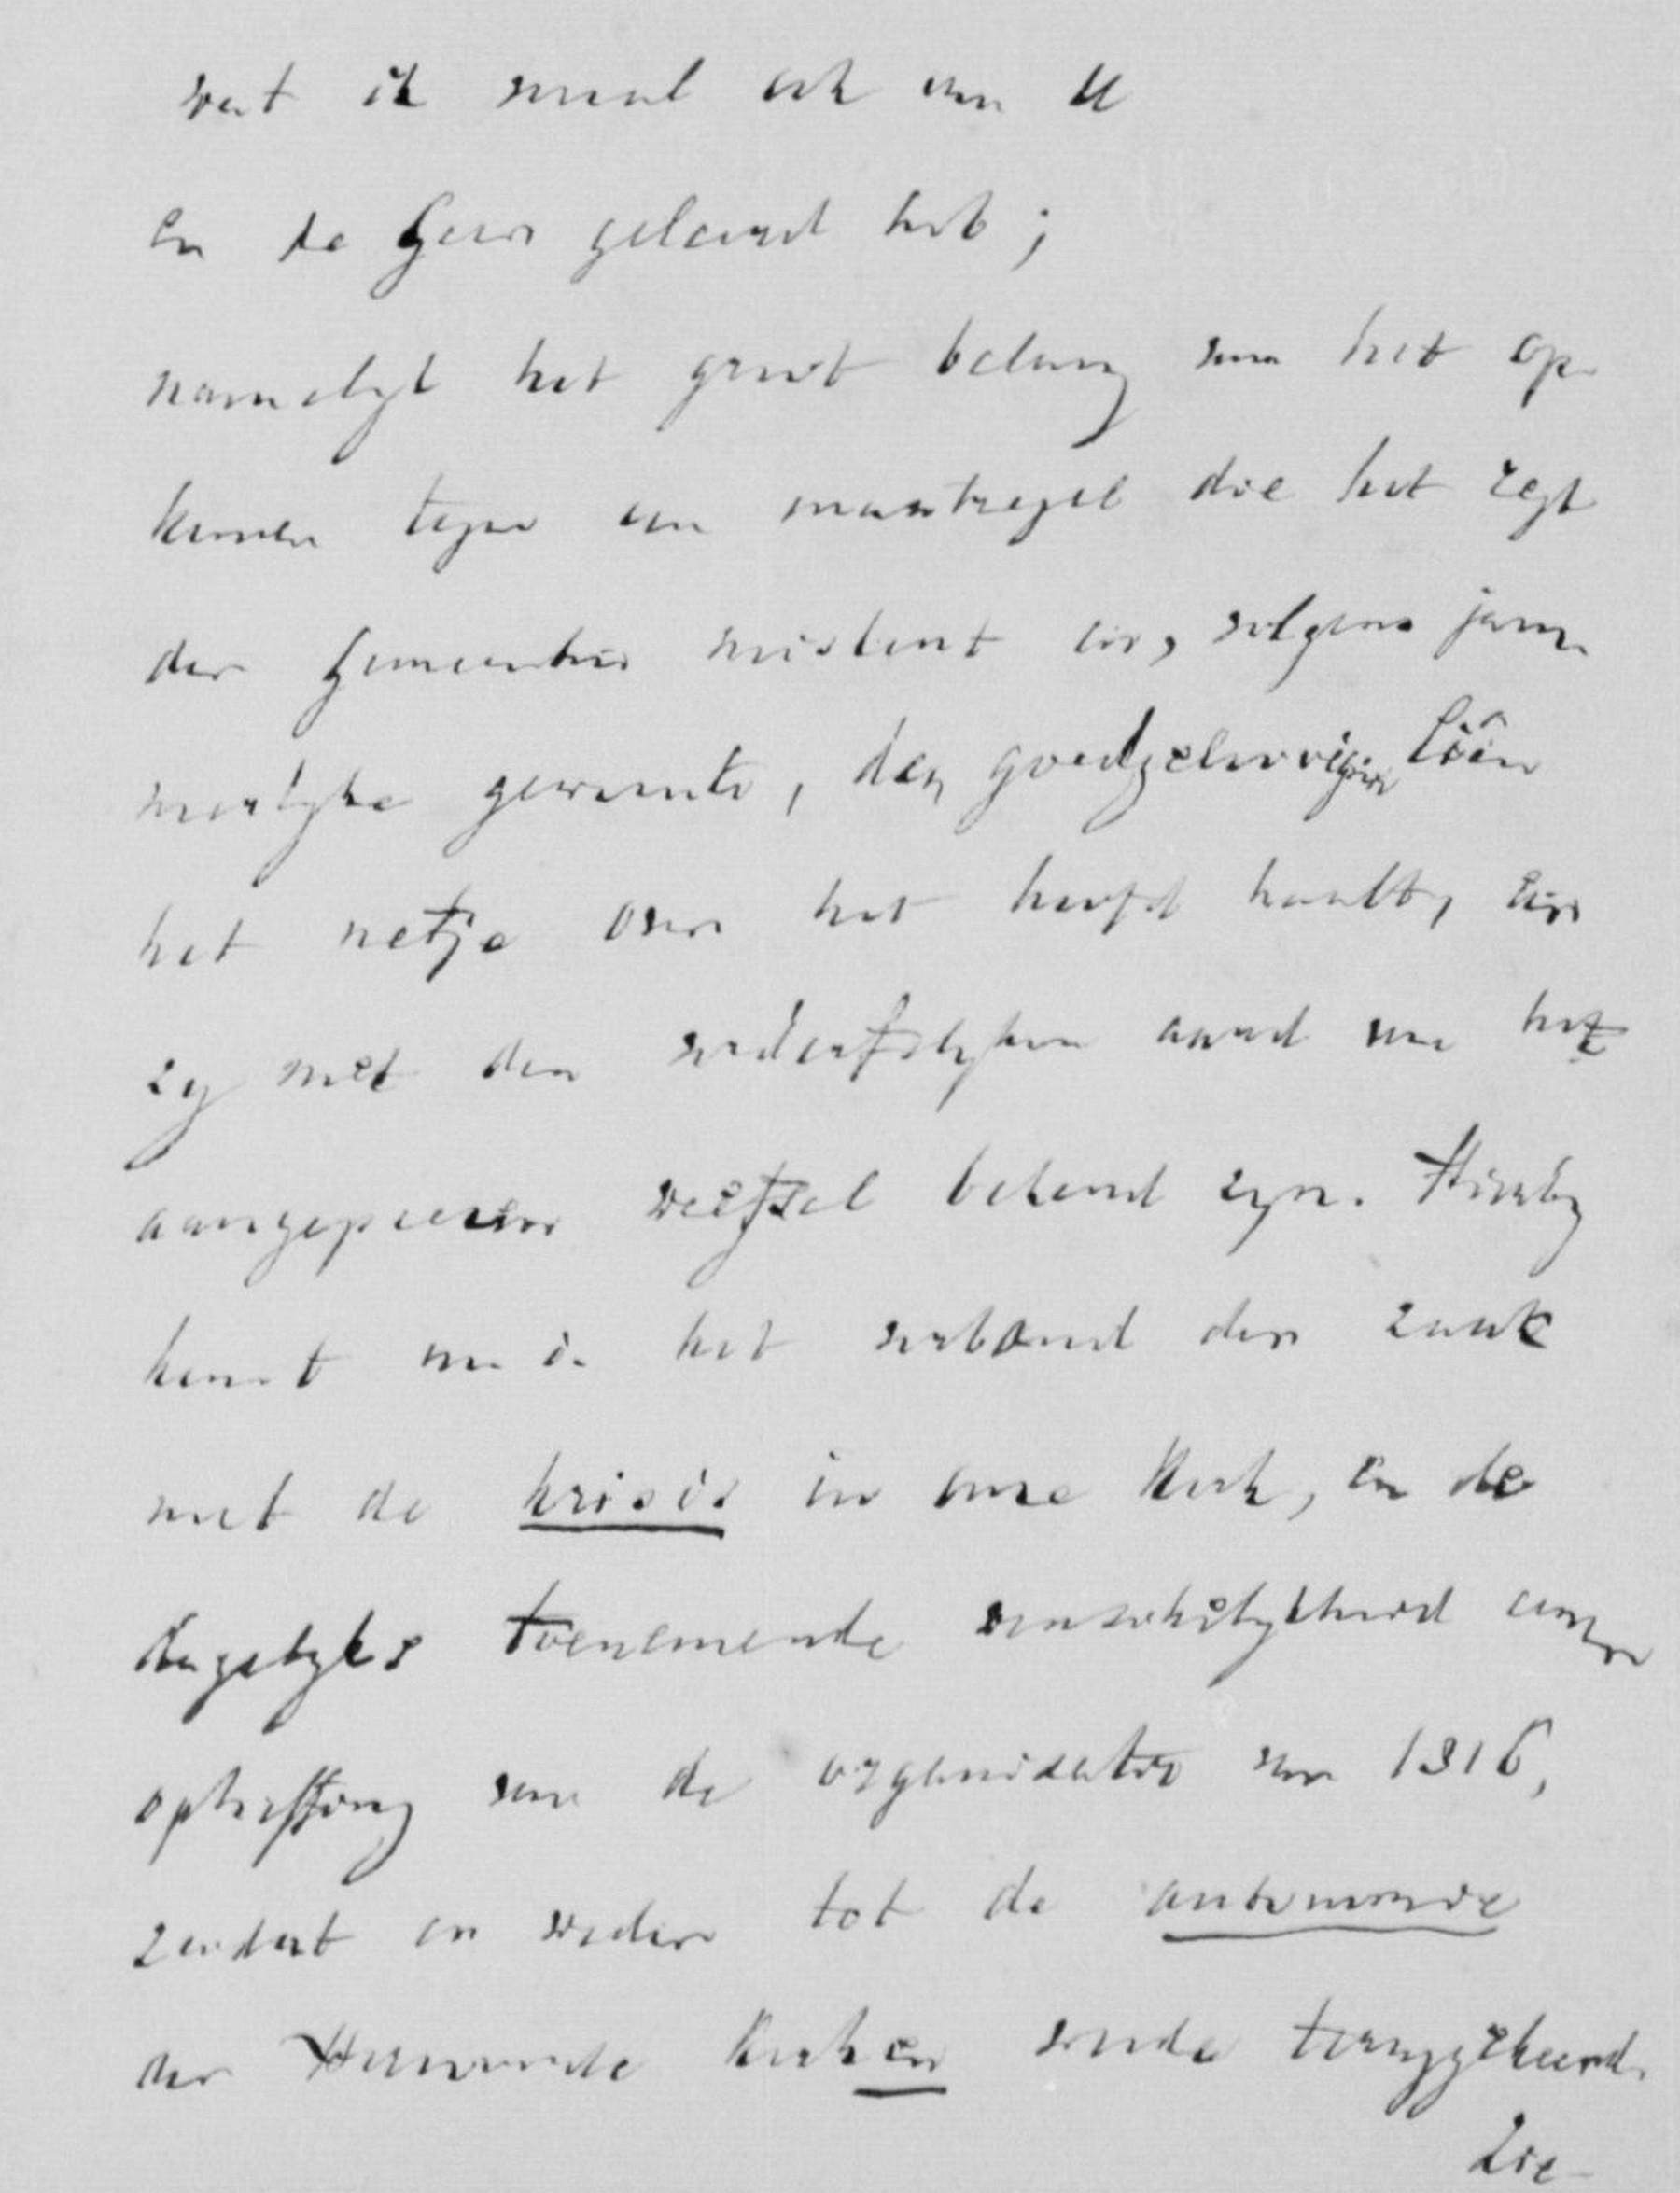 wat ik meermal ook van U
en de Geer geleerd heb;
namelyk het groot belang van het op-
komen tegen een maatregel die het regt
der Gemeenten miskent en, volgens jam-
merlyke gewoonte, den goedgeloovigen Leën
het netje over het hoofd haalt, eer
zy met den verderfelyken aard van het
aangeprezen weefsel bekend zyn. Hierby
komt nu i. het verband der zaak
met de krisis in onze Kerk, en de
dagelyks toenemende onzekerlykheid eener
opheffing van de organisatie van 1816,
zoodat er weder tot de autonomie
der Hervormde Kerken worde teruggekeerd.
Zie